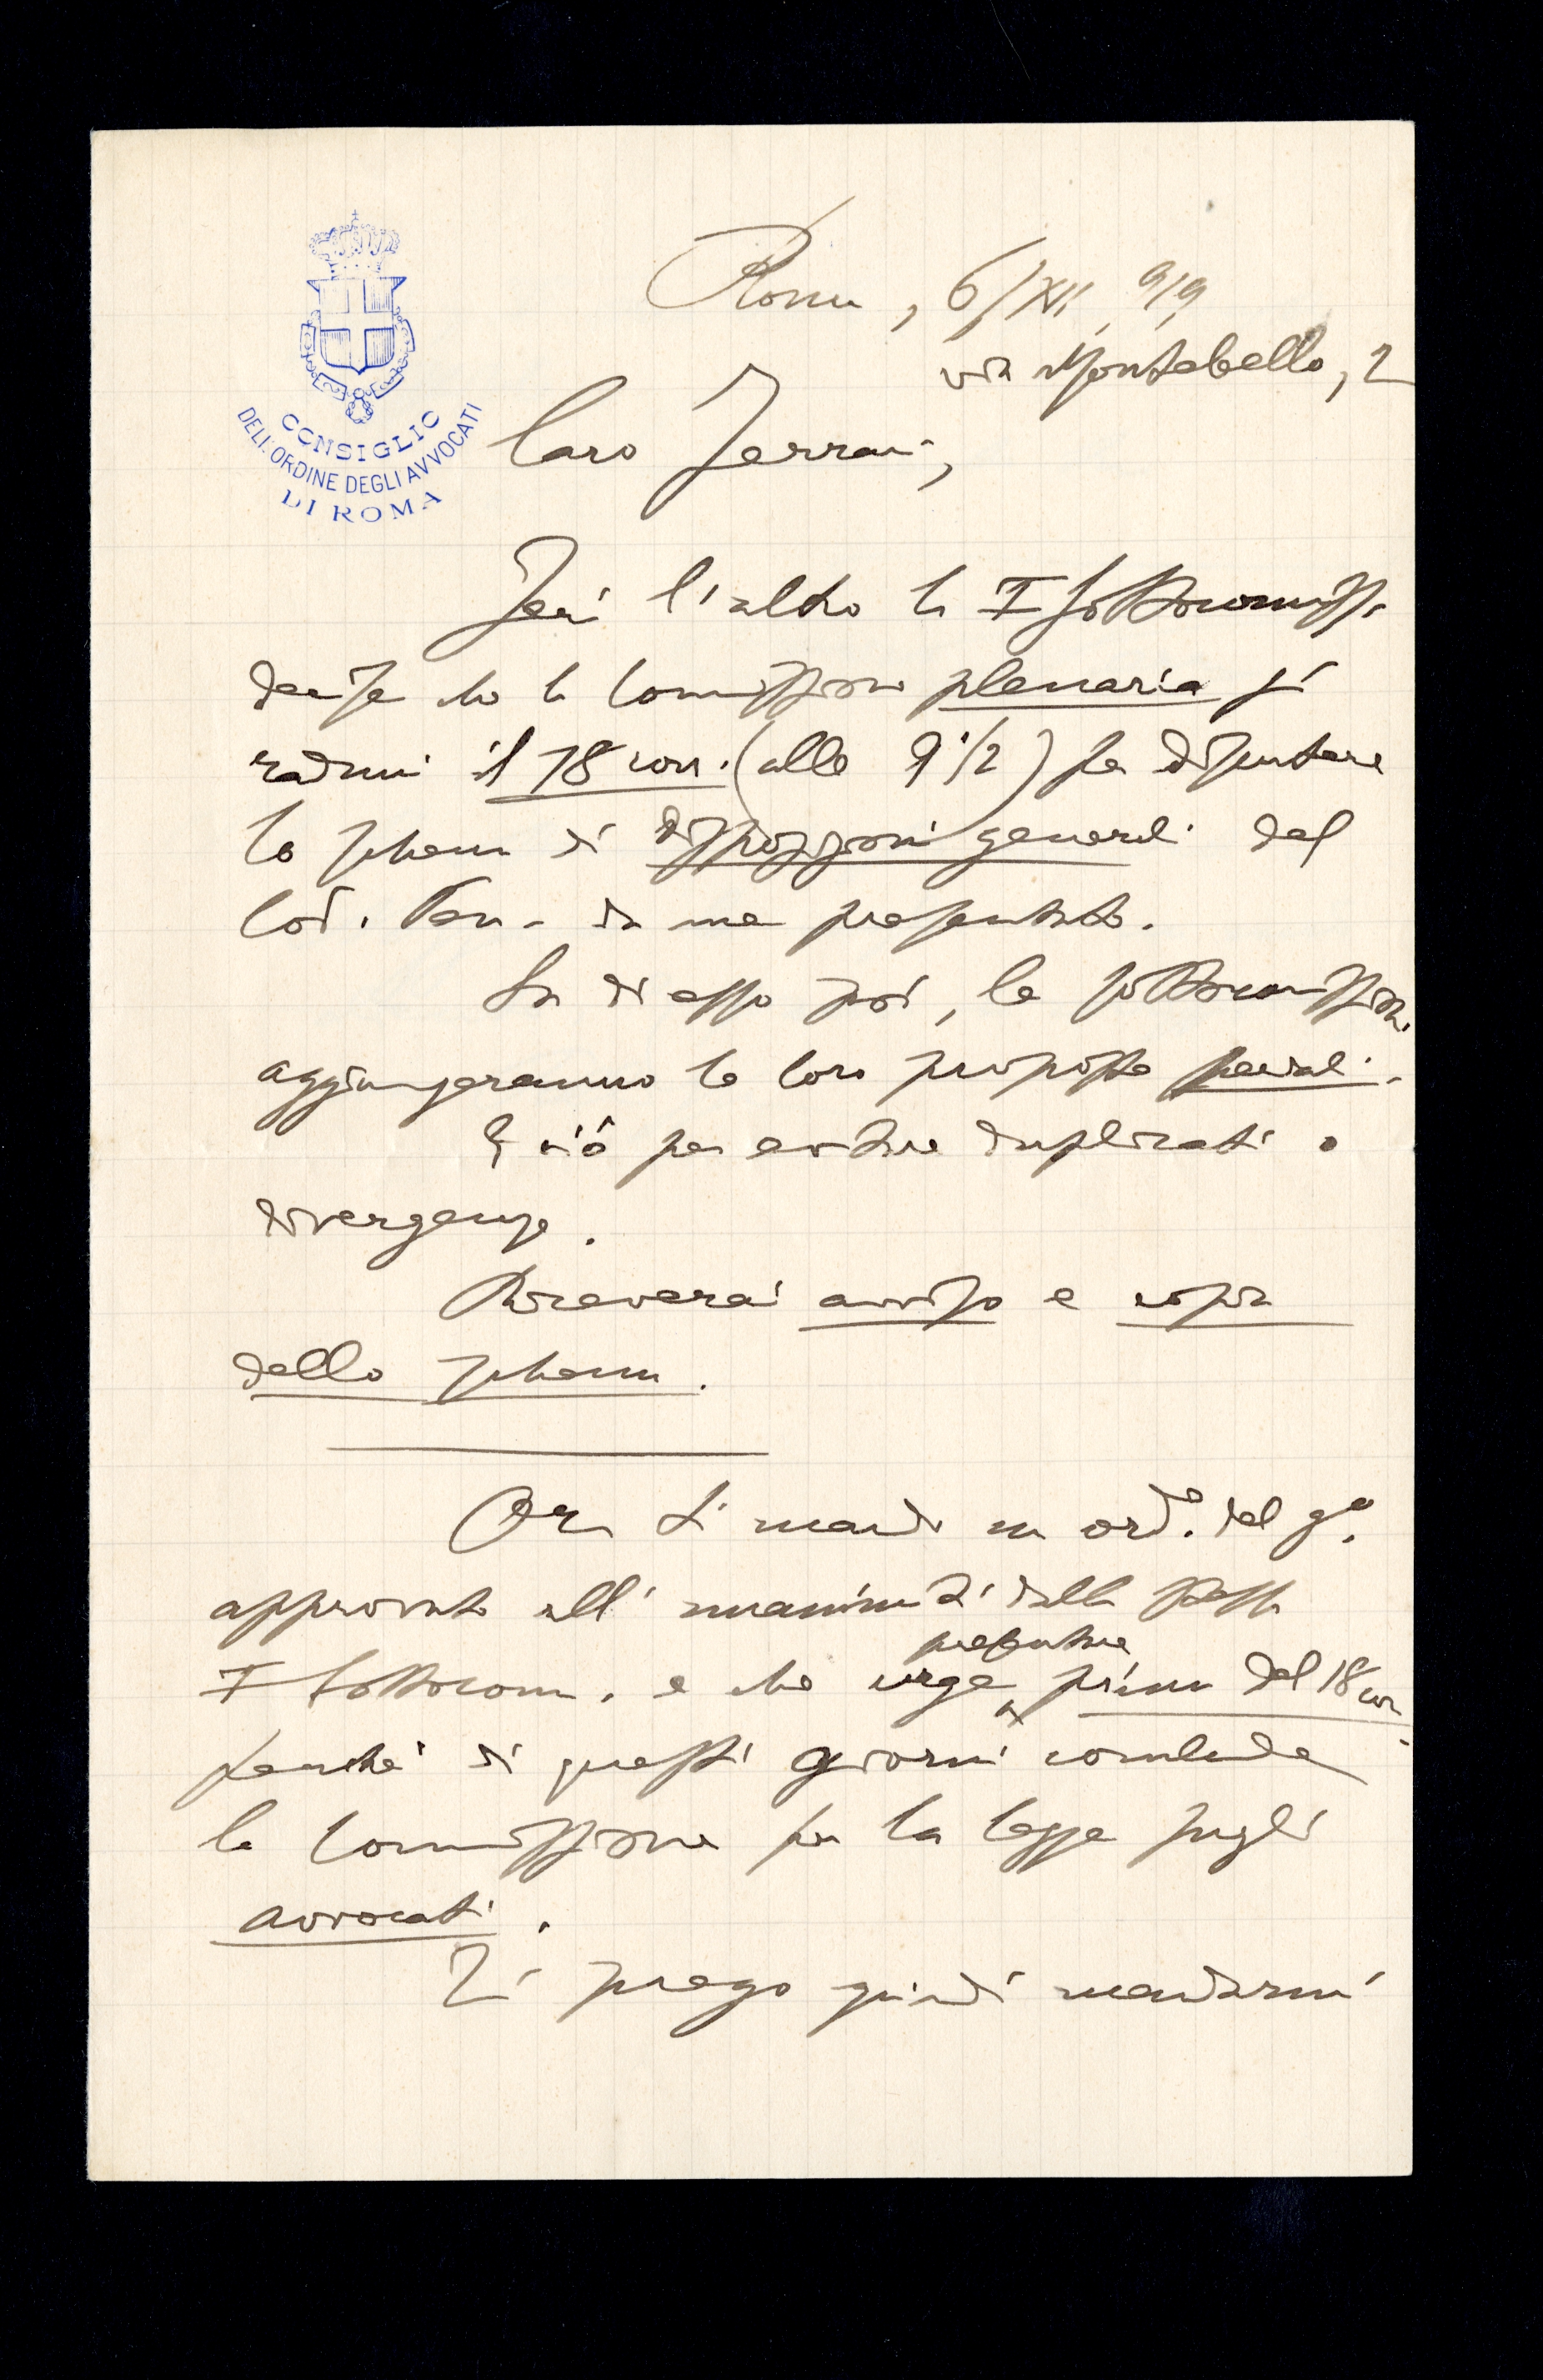 CONSIGLIO
DELL'ORDINE DEGLI AVVOCATI
DI ROMA
Roma, 6/XII, 919
via Montebello, 2
Caro Ferrari,
Ieri l'altro la I Sottocommiss.
decise che la Commissione plenaria si
raduni il 18 corr. (alle 9 1/2) per discutere
lo schema di disposizioni generali del
Cod. Pen. da me presentato.
Su di esso poi, le sottocommissioni
aggiungeranno le loro proposte speciali.
E ciò per evitare duplicati o
divergenze.
Riceverai avviso e copia
dello schema.
Ora ti mando un ord.e del g.o
approvato all'unanimità dalla stessa
I Sottocomm. e che urge presentare prima del 18 corr.
perché di questi giorni conclude
la Commissione per la legge sugli
avvocati.
Ti prego quindi mandarmi